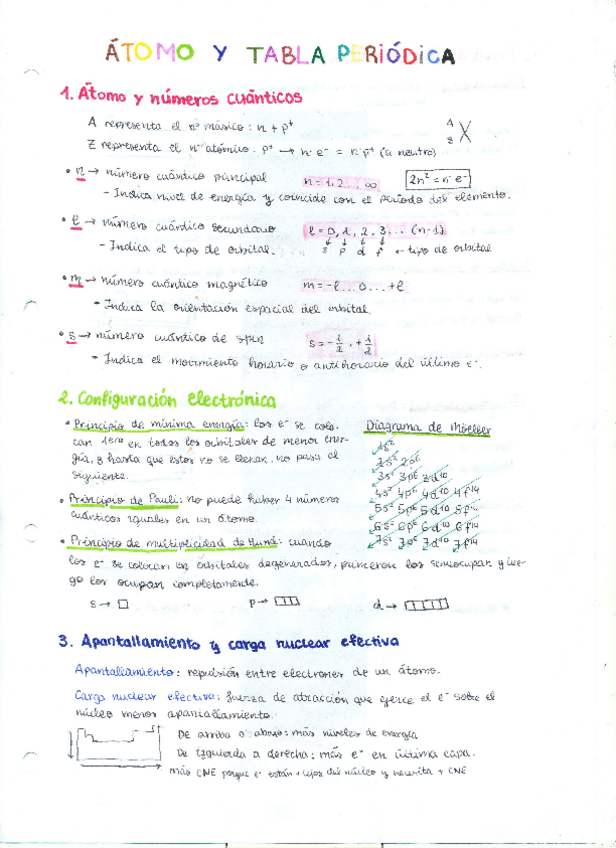 ÁTOMO Y TABLA PERIÓDICA
1. Átomo y números cuánticos
A representa el nº másico: n + p⁺
Z representa el nº atómico. p⁺ → nº e⁻ = nº p⁺ (si neutro)
A
Z X
• n → número cuántico principal n = 1, 2 ... ∞ 2n² = nº e⁻
- Indica nivel de energía y coincide con el período del elemento.
• l → número cuántico secundario l = 0, 1, 2, 3... (n-1)
- Indica el tipo de orbital. s p d f ← tipo de orbital
• m → número cuántico magnético m = -l ... 0 ... +l
- Indica la orientación espacial del orbital.
• s → número cuántico de spin s = -1/2, +1/2
- Indica el movimiento horario o antihorario del último e⁻.
2. Configuración electrónica
• Principio de mínima energía: los e⁻ se colo-
can 1ero en todos los orbitales de menor ener-
gía, y hasta que estos no se llenan, no pasa al
siguiente.
Diagrama de Moeller
1s²
2s² 2p⁶
3s² 3p⁶ 3d¹⁰
4s² 4p⁶ 4d¹⁰ 4f¹⁴
5s² 5p⁶ 5d¹⁰ 5f¹⁴
6s² 6p⁶ 6d¹⁰ 6f¹⁴
7s² 7p⁶ 7d¹⁰ 7f¹⁴
• Principio de Pauli: no puede haber 4 números
cuánticos iguales en un átomo.
• Principio de multiplicidad de Hund: cuando
los e⁻ se colocan en orbitales degenerados, primero los semiocupan y lue-
go los ocupan completamente.
s → p → d →
3. Apantallamiento y carga nuclear efectiva
Apantallamiento: repulsión entre electrones de un átomo.
Carga nuclear efectiva: fuerza de atracción que ejerce el e⁻ sobre el
núcleo menos apantallamiento.
De arriba a abajo: más niveles de energía
De izquierda a derecha: más e⁻ en última capa.
más CNE porque e⁻ están + lejos del núcleo y necesita + CNE